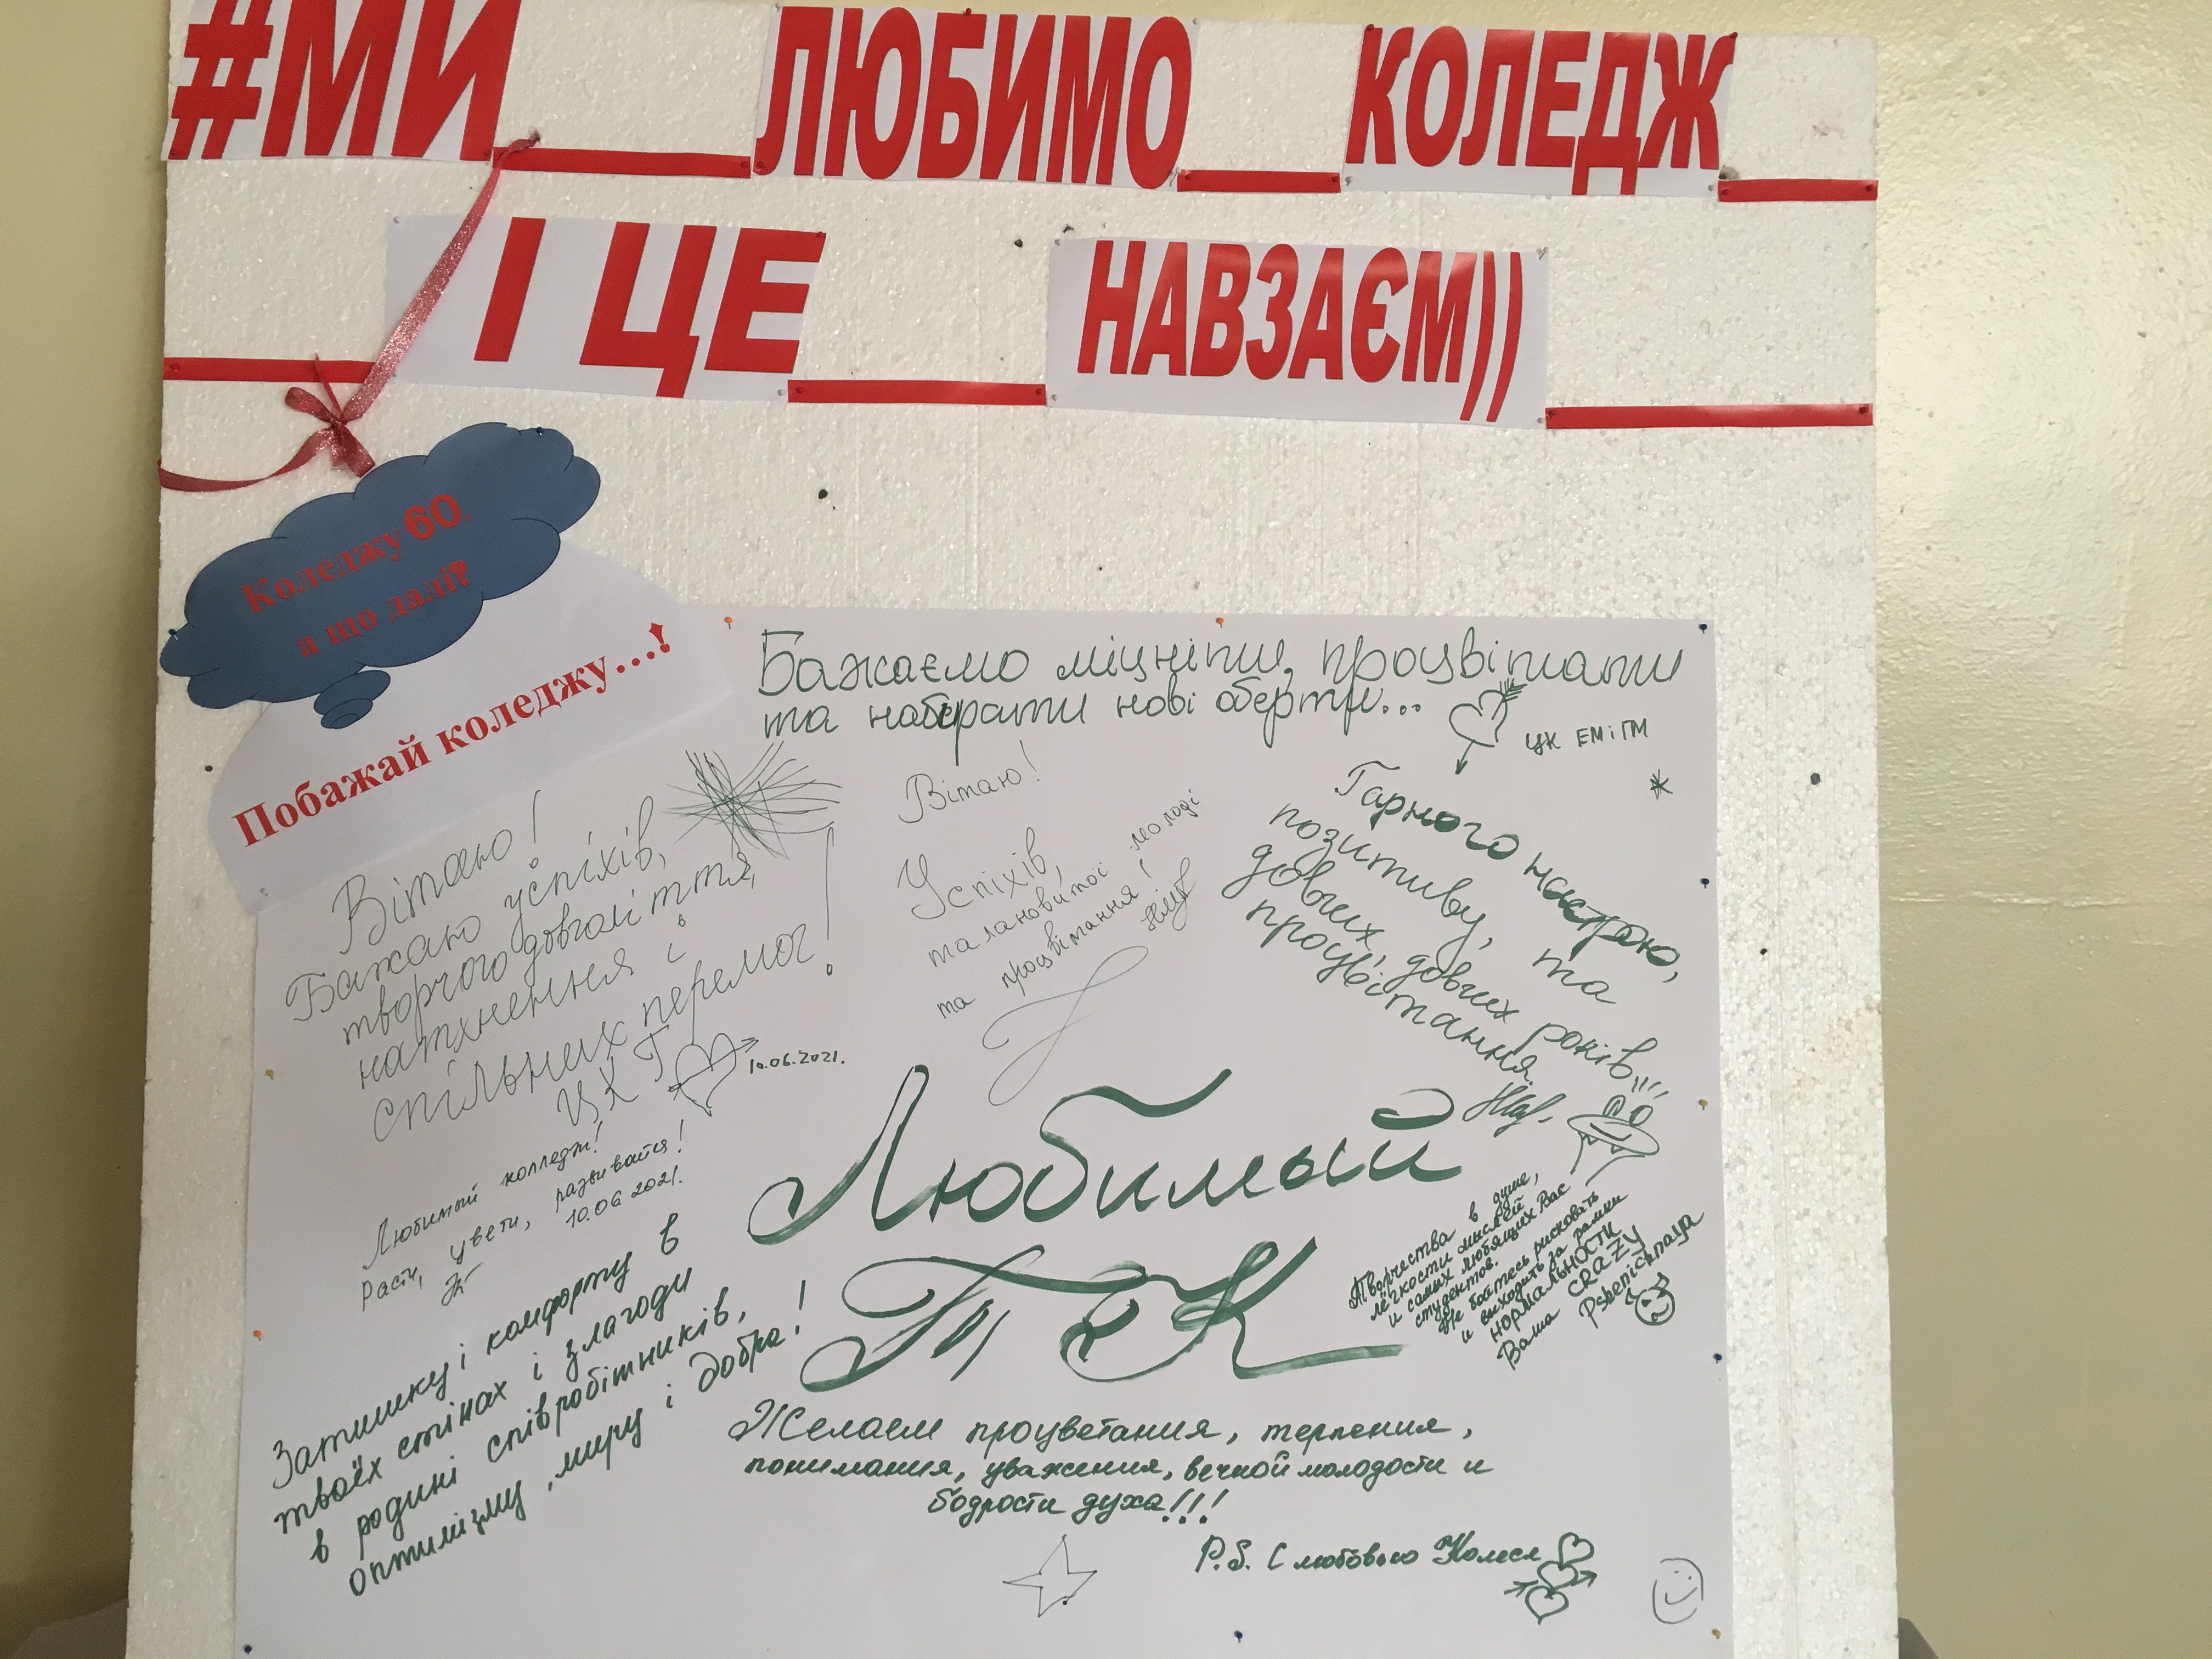 #МИ__ЛЮБИМО_КОЛЕДЖ_
_І ЦЕ__НАВЗАЄМ))_
Коледжу 60
а що далі?
Побажай коледжу...!
Бажаємо міцніти, процвітати
та набирати нові оберти...
ЦК ЕМ і ГМ
Вітаю!
Бажаю успіхів,
творчого довголіття,
натхнення і
спільних перемог!
ЦК Г
10.06.2021.
Вітаю!
Успіхів,
талановитої молоді
та процвітання!
Гарного настрою,
позитиву, та
довгих, довгих років,
процвітання.
Любимый колледж!
Расти, цвети, развивайся!
10.06 2021.
Любимый
Затишку і комфорту в
твоїх стінах і злагоди
в родині співробітників,
оптимізму, миру і добра!
Творчества в душе,
лёгкости мыслей
и самых любящих Вас
студентов.
Не бойтесь рисковать
и выходить за рамки
нормальности
Ваша CRAZY
Pshenichnaya
Желаем процветания, терпения,
понимания, уважения, вечной молодости и
бодрости духа!!!
P.S. С любовью